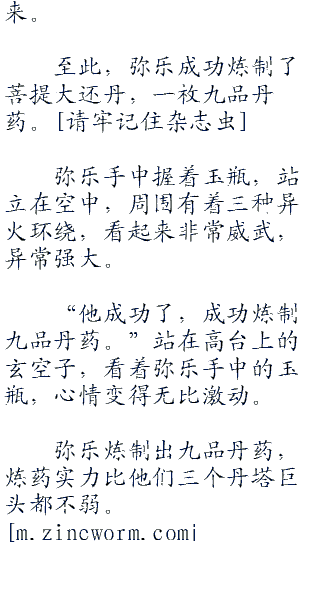 来。
至此，弥乐成功炼制了
菩提大还丹，一枚九品丹
药。[请牢记住杂志虫]
弥乐手中握着玉瓶，站
立在空中，周围有着三种异
火环绕，看起来非常威武，
异常强大。
“他成功了，成功炼制
九品丹药。”站在高台上的
玄空子，看着弥乐手中的玉
瓶，心情变得无比激动。
弥乐炼制出九品丹药，
炼药实力比他们三个丹塔巨
头都不弱。
[m.zincworm.com]